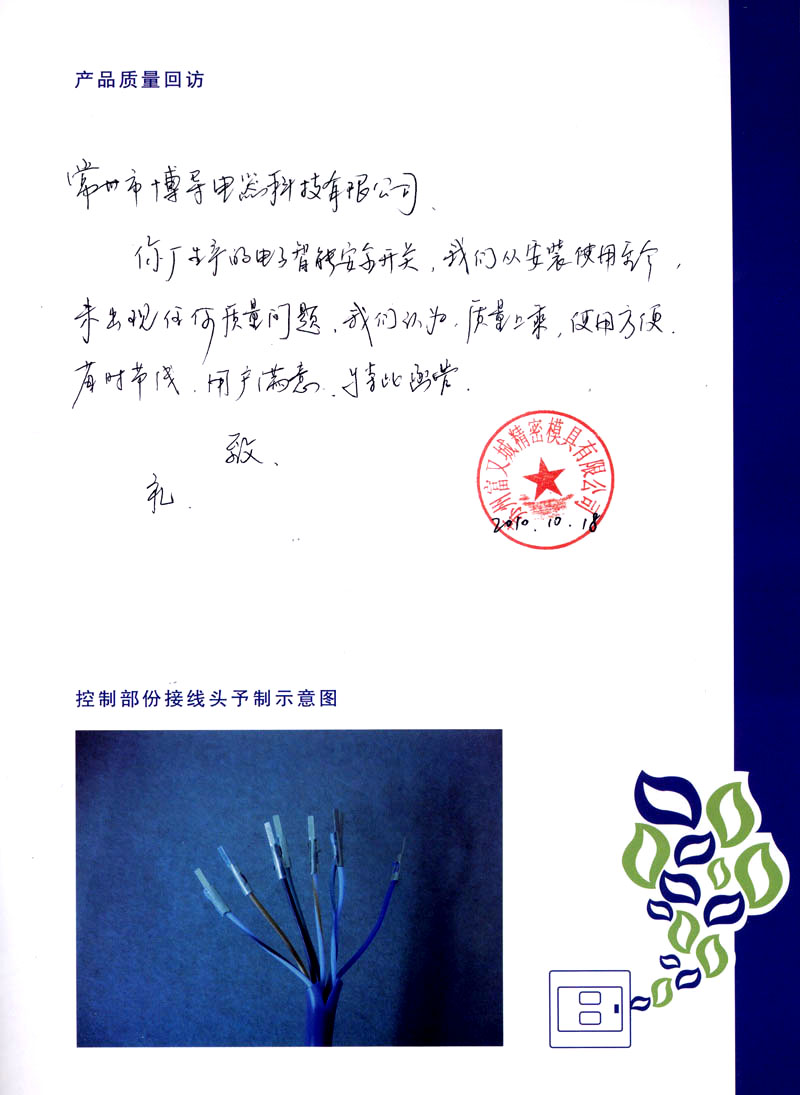 产品质量回访
常州市博导电器科技有限公司、
你厂生产的电子智能安全开关，我们从安装使用至今，
未出现任何质量问题，我们认为，质量上乘，使用方便，
省时节线，用户满意，特此函告。
致、
礼.
苏州富又城精密模具有限公司
2010.10.18
控制部份接线头予制示意图